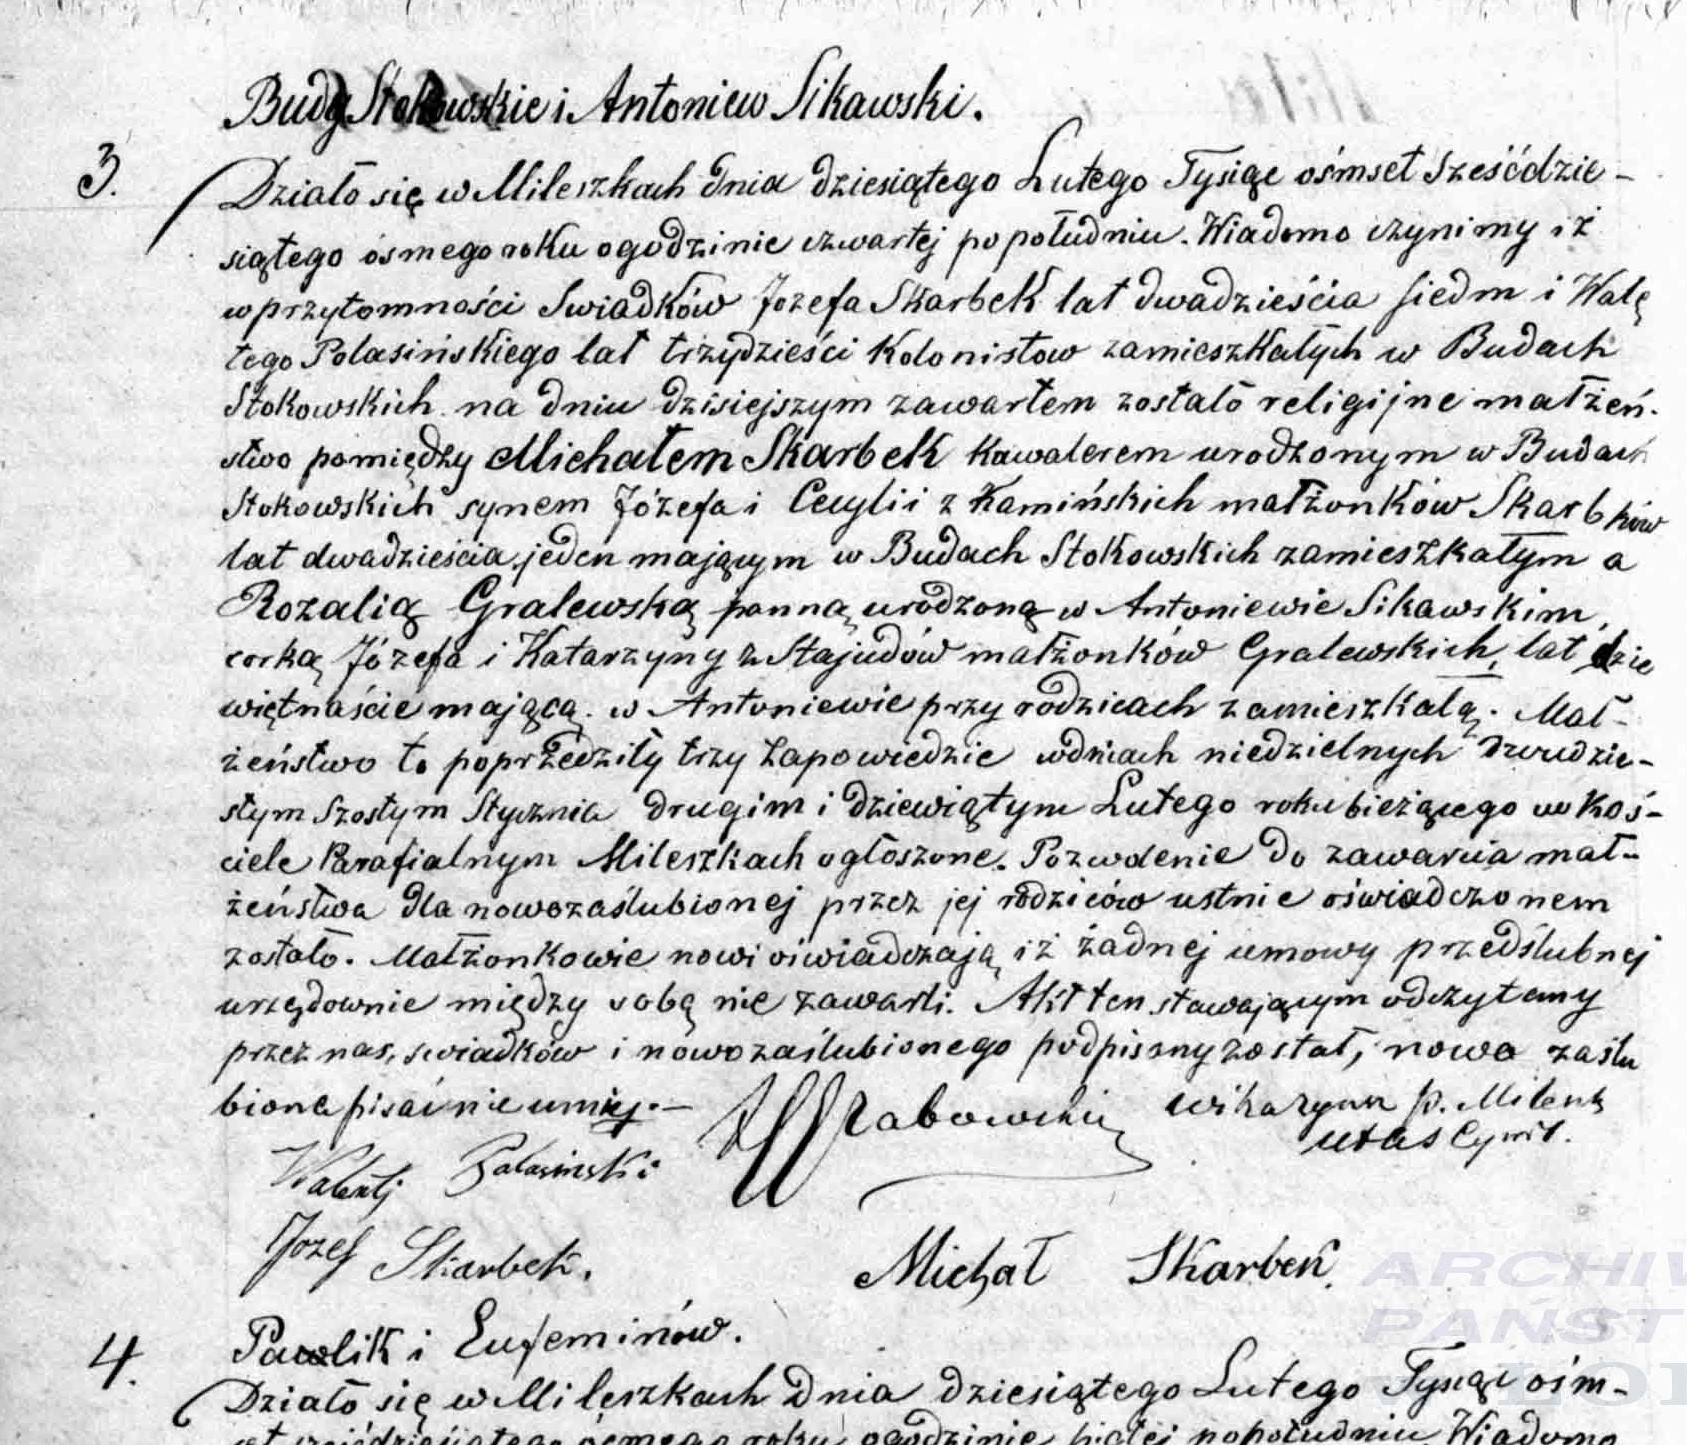 Budy Stokowskie i Antoniew Sikawski.
3.
Działo się w Mileszkach dnia dziesiątego Lutego Tysiąc ośmset sześćdzie-
siątego ósmego roku o godzinie czwartej po południu. Wiadomo czynimy iż
w przytomności Swiadków Jozefa Skarbek lat dwadzieścia siedm i Walę
tego Polasińskiego lat trzydzieści Kolonistow zamieszkałych w Budach
Stokowskich na dniu dzisiejszym zawartem zostało religijne małżeń-
stwo pomiędzy Michałem Skarbek Kawalerem urodzonym w Budach
Stokowskich synem Józefa i Cecylii z Kamińskich małżonków Skarbków
lat dwadzieścia jeden mającym w Budach Stokowskich zamieszkałym a
Rozalią Gralewską panną urodzoną w Antoniewie Sikawskim,
corką Józefa i Katarzyny z Stajudów małżonków Gralewskich, lat dzie
więtnaście mającą w Antoniewie przy rodzicach zamieszkałą. Mał-
żeństwo to poprzedziły trzy Zapowiedzie w dniach niedzielnych Dwudzie-
stym Szostym Stycznia drugim i dziewiątym Lutego roku bieżącego w Koś-
ciele Parafialnym Mileszkach ogłoszone. Pozwolenie do zawarcia mał-
żeństwa dla nowozaślubionej przez jej rodziców ustnie oświadczonem
zostało. Małżonkowie nowi oświadczają iż żadnej umowy przedślubnej
urzędownie między sobą nie zawarli. Akt ten stawającym odczytany
przez nas, swiadków i nowozaślubionego podpisany został, nowo zaślu
biona pisać nie umie.-
Grabowski wikaryusz p. Milesz
utas Cywil.
Walenty Palasinski
Jozef Skarbek.
Michał Skarbek.
4.
Pawlik i Eufeminów.
Działo się w Mileszkach dnia dziesiątego Lutego Tysiąc ośm-
set sześćdziesiątego ósmego roku o godzinie piątej po południu. Wiadomo
ARCHIW
PAŃST